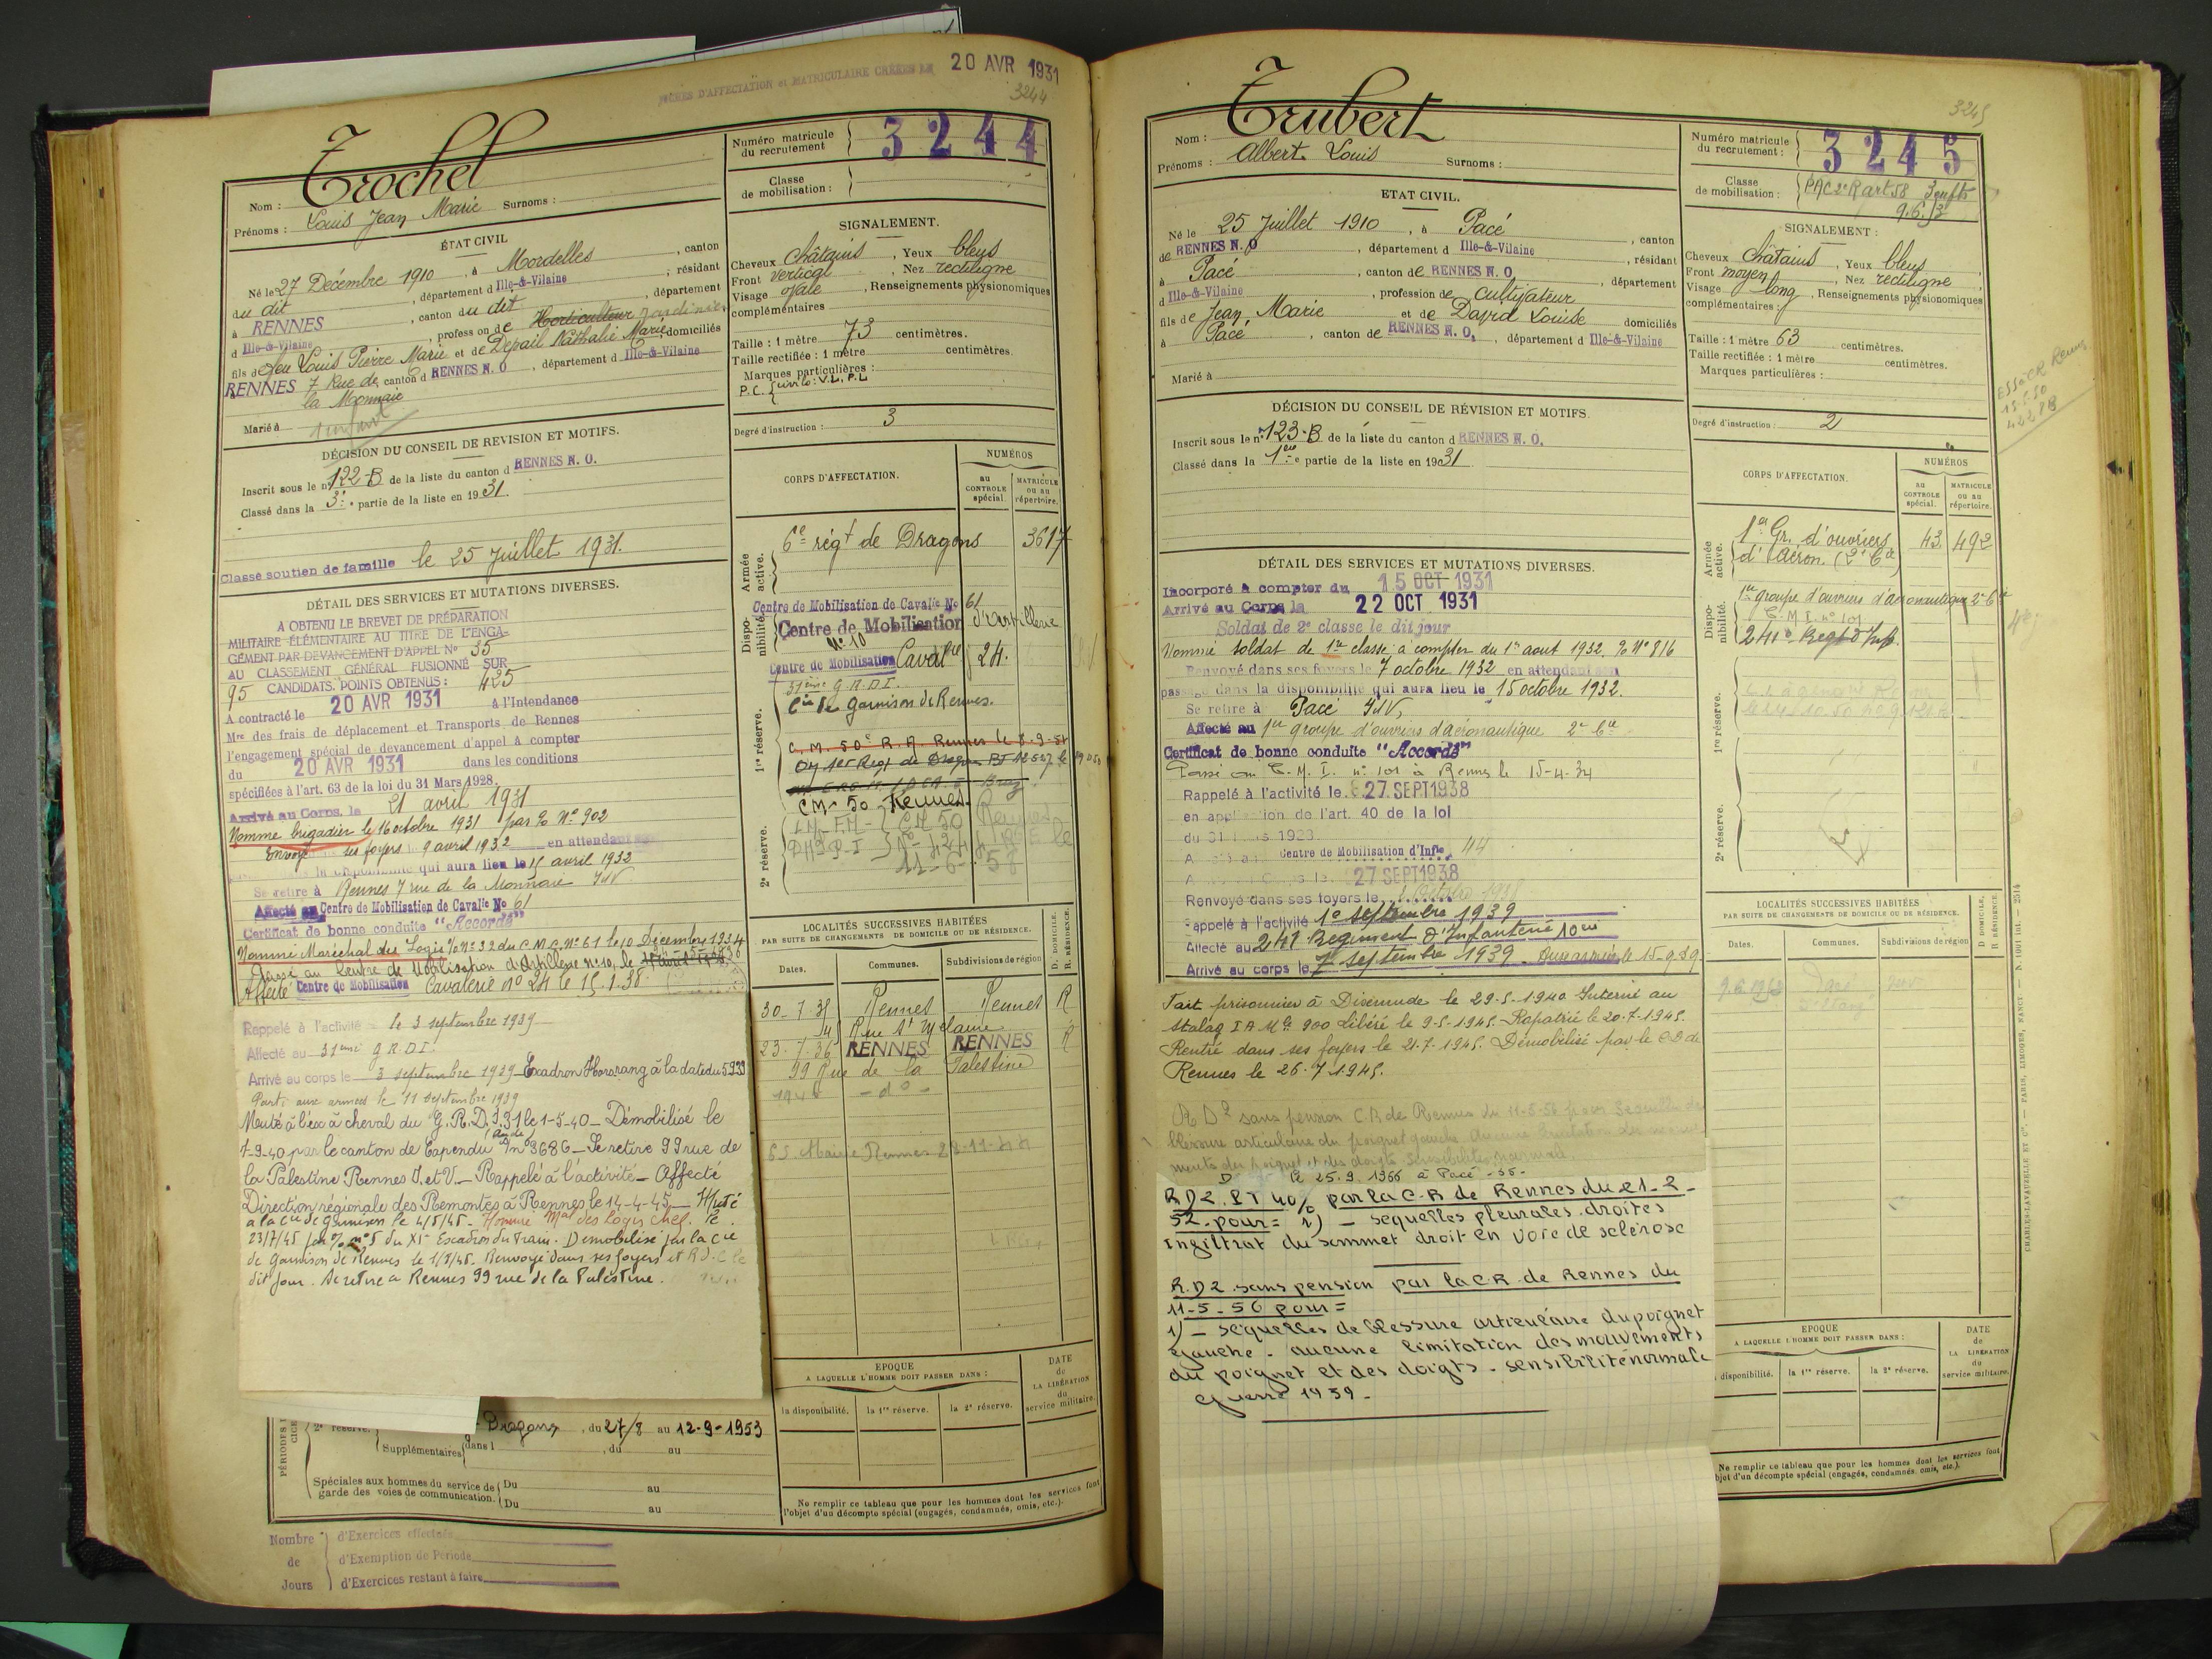 FICHES D'AFFECTATION et MATRICULAIRE CRÉÉES LE 20 AVR 1931
3244
Nom : Trochel
Prénoms : Louis Jean Marie Surnoms :
Numéro matricule du recrutement 3244
Classe de mobilisation :
ÉTAT CIVIL
Né le 27 Décembre 1910, à Mordelles, canton
du dit, département d Ille-&-Vilaine, résidant
à RENNES, canton du dit, département
d Ille-&-Vilaine, profession de Horticulteur jardinier
fils de feu Louis Pierre Marie et de Depail Nathalie Marie, domiciliés
à RENNES 7 Rue de la Monnaie canton d RENNES N. O, département d Ille-&-Vilaine
Marié à
1 enfant
SIGNALEMENT.
Cheveux Châtains, Yeux bleus
Front vertical, Nez rectiligne
Visage ovale, Renseignements physionomiques
complémentaires
Taille : 1 mètre 73 centimètres.
Taille rectifiée : 1 mètre centimètres.
Marques particulières :
P.C. { civils : V.L. P.L
Degré d'instruction : 3
DÉCISION DU CONSEIL DE REVISION ET MOTIFS.
Inscrit sous le n° 122-B de la liste du canton d RENNES N. O.
Classé dans la 3e partie de la liste en 1931.
Classé soutien de famille le 25 Juillet 1931.
DÉTAIL DES SERVICES ET MUTATIONS DIVERSES.
A OBTENU LE BREVET DE PRÉPARATION
MILITAIRE ÉLÉMENTAIRE AU TITRE DE L'ENGA-
GEMENT PAR DEVANCEMENT D'APPEL No 35
AU CLASSEMENT GÉNÉRAL FUSIONNÉ SUR
95 CANDIDATS. POINTS OBTENUS : 425
A contracté le 20 AVR 1931 à l'Intendance
Mre des frais de déplacement et Transports de Rennes
l'engagement spécial de devancement d'appel A compter
du 20 AVR 1931 dans les conditions
spécifiées à l'art. 63 de la loi du 31 Mars 1928.
Arrivé au Corps, le 21 avril 1931
Nommé brigadier le 16 octobre 1931 par % No 902
Envoyé ses foyers 9 avril 1932 en attendant
la disponibilité qui aura lieu le 15 avril 1932
Se retire à Rennes 7 rue de la Monnaie I&V.
Affecté au Centre de Mobilisation de Cavalie No 61
Certificat de bonne conduite "Accordé"
Nommé Maréchal des Logis % No 32 du C.M.C. No 61 le 10 Décembre 1934
Passé au Centre de Mobilisation d'Artillerie No 10, le
Affecté Centre de Mobilisation Cavalerie No 24 le 15.1.38.
Rappelé à l'activité le 3 septembre 1939
Affecté au 31ème G.R.D.I.
Arrivé au corps le 3 septembre 1939 Escadron Hors rang à la date du 5.9.39
Parti aux armées le 11 septembre 1939
Muté à l'ex à cheval du G.R.D.I. 31 le 1-5-40 - Démobilisé le
7-9-40 par le canton de Capendu (Aude) no 3686 - Se retire 99 rue de
la Palestine Rennes I. et V. - Rappelé à l'activité - Affecté
Direction régionale des Remontes à Rennes le 14-4-45 - Muté
à la Cie de garnison le 4/5/45 - Nommé Mal des Logis chef. le
23/7/45 par % no 5 du XIe Escadron du Train. Démobilisé par la Cie
de Garnison de Rennes le 1/9/45. Renvoyé dans ses foyers et R.D.C le
dit jour. Se retire à Rennes 99 rue de la Palestine.
CORPS D'AFFECTATION.
NUMÉROS
au CONTROLE spécial.
MATRICULE ou au répertoire.
Armée active.
6e régt de Dragons 3617
Disponibilité.
Centre de Mobilisation de Cavalie No 61
Centre de Mobilisation d'artillerie
No 10
Centre de Mobilisation Cavalrie 24.
1re réserve.
31ème G.R.D.I.
Cie de garnison de Rennes.
C. M. 50e R. A. Rennes le 8-9-51
CM - 50 - Rennes.
2e réserve.
11-6-58
LOCALITÉS SUCCESSIVES HABITÉES
PAR SUITE DE CHANGEMENTS DE DOMICILE OU DE RÉSIDENCE.
D. DOMICILE. R. RÉSIDENCE.
Dates. Communes. Subdivisions de région
30-7-35 Rennes Rennes R
Rue St Melaine
23.7.36 RENNES RENNES R
99 Rue de la Palestine
1946 - do -
EPOQUE
A LAQUELLE L'HOMME DOIT PASSER DANS :
la disponibilité. la 1re réserve. la 2e réserve.
DATE de LA LIBÉRATION du service militaire.
Ne remplir ce tableau que pour les hommes dont les services font
l'objet d'un décompte spécial (engagés, condamnés, omis, etc.).
2e réserve.
Dragons, du 27/8 au 12-9-1953
Supplémentaires dans l , du au
Spéciales aux hommes du service de garde des voies de communication. { Du au
Du au
Nombre de Jours
d'Exercices effectués
d'Exemption de Période
d'Exercices restant à faire
3245
Nom : Trubert
Prénoms : Albert Louis Surnoms :
Numéro matricule du recrutement : 3245
Classe de mobilisation : PAC 2e R art 58 3 enfts
9.6.
ETAT CIVIL.
Né le 25 Juillet 1910, à Pacé, canton
de RENNES N. O, département d Ille-&-Vilaine, résidant
à Pacé, canton de RENNES N. O, département
d Ille-&-Vilaine, profession de cultivateur
fils de Jean Marie et de David Louise domiciliés
à Pacé, canton de RENNES N. O., département d Ille-&-Vilaine
Marié à
SIGNALEMENT :
Cheveux Châtains, Yeux bleus
Front moyen, Nez rectiligne
Visage long, Renseignements physionomiques
complémentaires :
Taille : 1 mètre 63 centimètres.
Taille rectifiée : 1 mètre centimètres.
Marques particulières :
Degré d'instruction : 2
DÉCISION DU CONSEIL DE RÉVISION ET MOTIFS.
Inscrit sous le n° 123-B de la liste du canton d RENNES N. O.
Classé dans la 1ere partie de la liste en 1931
DÉTAIL DES SERVICES ET MUTATIONS DIVERSES.
Incorporé à compter du 15 OCT 1931
Arrivé au Corps la 22 OCT 1931
Soldat de 2e classe le dit jour
Nommé soldat de 1re classe à compter du 1er aout 1932, % No 816
Renvoyé dans ses foyers le 7 octobre 1932 en attendant son
passage dans la disponibilité qui aura lieu le 15 octobre 1932.
Se retire à Pacé I&V,
Affecté au 1er groupe d'ouvriers d'aéronautique 2e Cie
Certificat de bonne conduite "Accordé"
Passé au C.M.I. no 101 à Rennes le 15-4-34
Rappelé à l'activité le 27 SEPT 1938
en application de l'art. 40 de la loi
du 31 1928
Centre de Mobilisation d'Infie 44
27 SEPT 1938
Renvoyé dans ses foyers le
Rappelé à l'activité 1e septembre 1939
Affecté au 241 Régiment d'Infanterie 10e Cie
Arrivé au corps le 7 septembre 1939 - Aux armées le 15-9-39
Fait prisonnier à Dixmude le 29-5-1940 Interné au
stalag I A Mle 900 Libéré le 9-5-1945. Rapatrié le 20-7-1945.
Rentré dans ses foyers le 21.7.1945. Démobilisé par le CD de
Rennes le 26.7.1945.
R D2 sans pension C.R de Rennes du 11-5-56 pour séquelles de
blessure articulaire du poignet gauche aucune limitation des mouve-
ments du poignet et des doigts. sensibilité normale.
le 25.9.1966 à Pacé -35-
R.D2. P.T 40% par la C.R de Rennes du 21-2-
52 pour = 1) - sequelles pleurales droites
Infiltrat du sommet droit en voie de sclérose
R.D2 sans pension par la C.R. de Rennes du
11-5-56 pour =
1) - séquelles de blessure articulaire du poignet
gauche - aucune limitation des mouvements
du poignet et des doigts - sensibilité normale
Guerre 1939 -
CORPS D'AFFECTATION.
NUMÉROS
au CONTROLE spécial.
MATRICULE ou au répertoire.
Armée active.
1er Gr. d'ouvriers 43 492
d'Aéron. (2e Cie)
Disponibilité.
1er groupe d'ouvriers d'aéronautique 2e Cie
C.M.I. no 101
241e Regt d'Inf.
1re réserve.
2e réserve.
LOCALITÉS SUCCESSIVES HABITÉES
PAR SUITE DE CHANGEMENTS DE DOMICILE OU DE RÉSIDENCE.
D DOMICILE, R RÉSIDENCE
Dates. Communes. Subdivisions de région
Pacé
EPOQUE
A LAQUELLE L'HOMME DOIT PASSER DANS :
disponibilité. la 1re réserve. la 2e réserve.
DATE de LA LIBÉRATION du service militaire.
Ne remplir ce tableau que pour les hommes dont les services font
objet d'un décompte spécial (engagés, condamnés, omis, etc.).
CHARLES-LAVAUZELLE ET Cie. — PARIS, LIMOGES, NANCY.